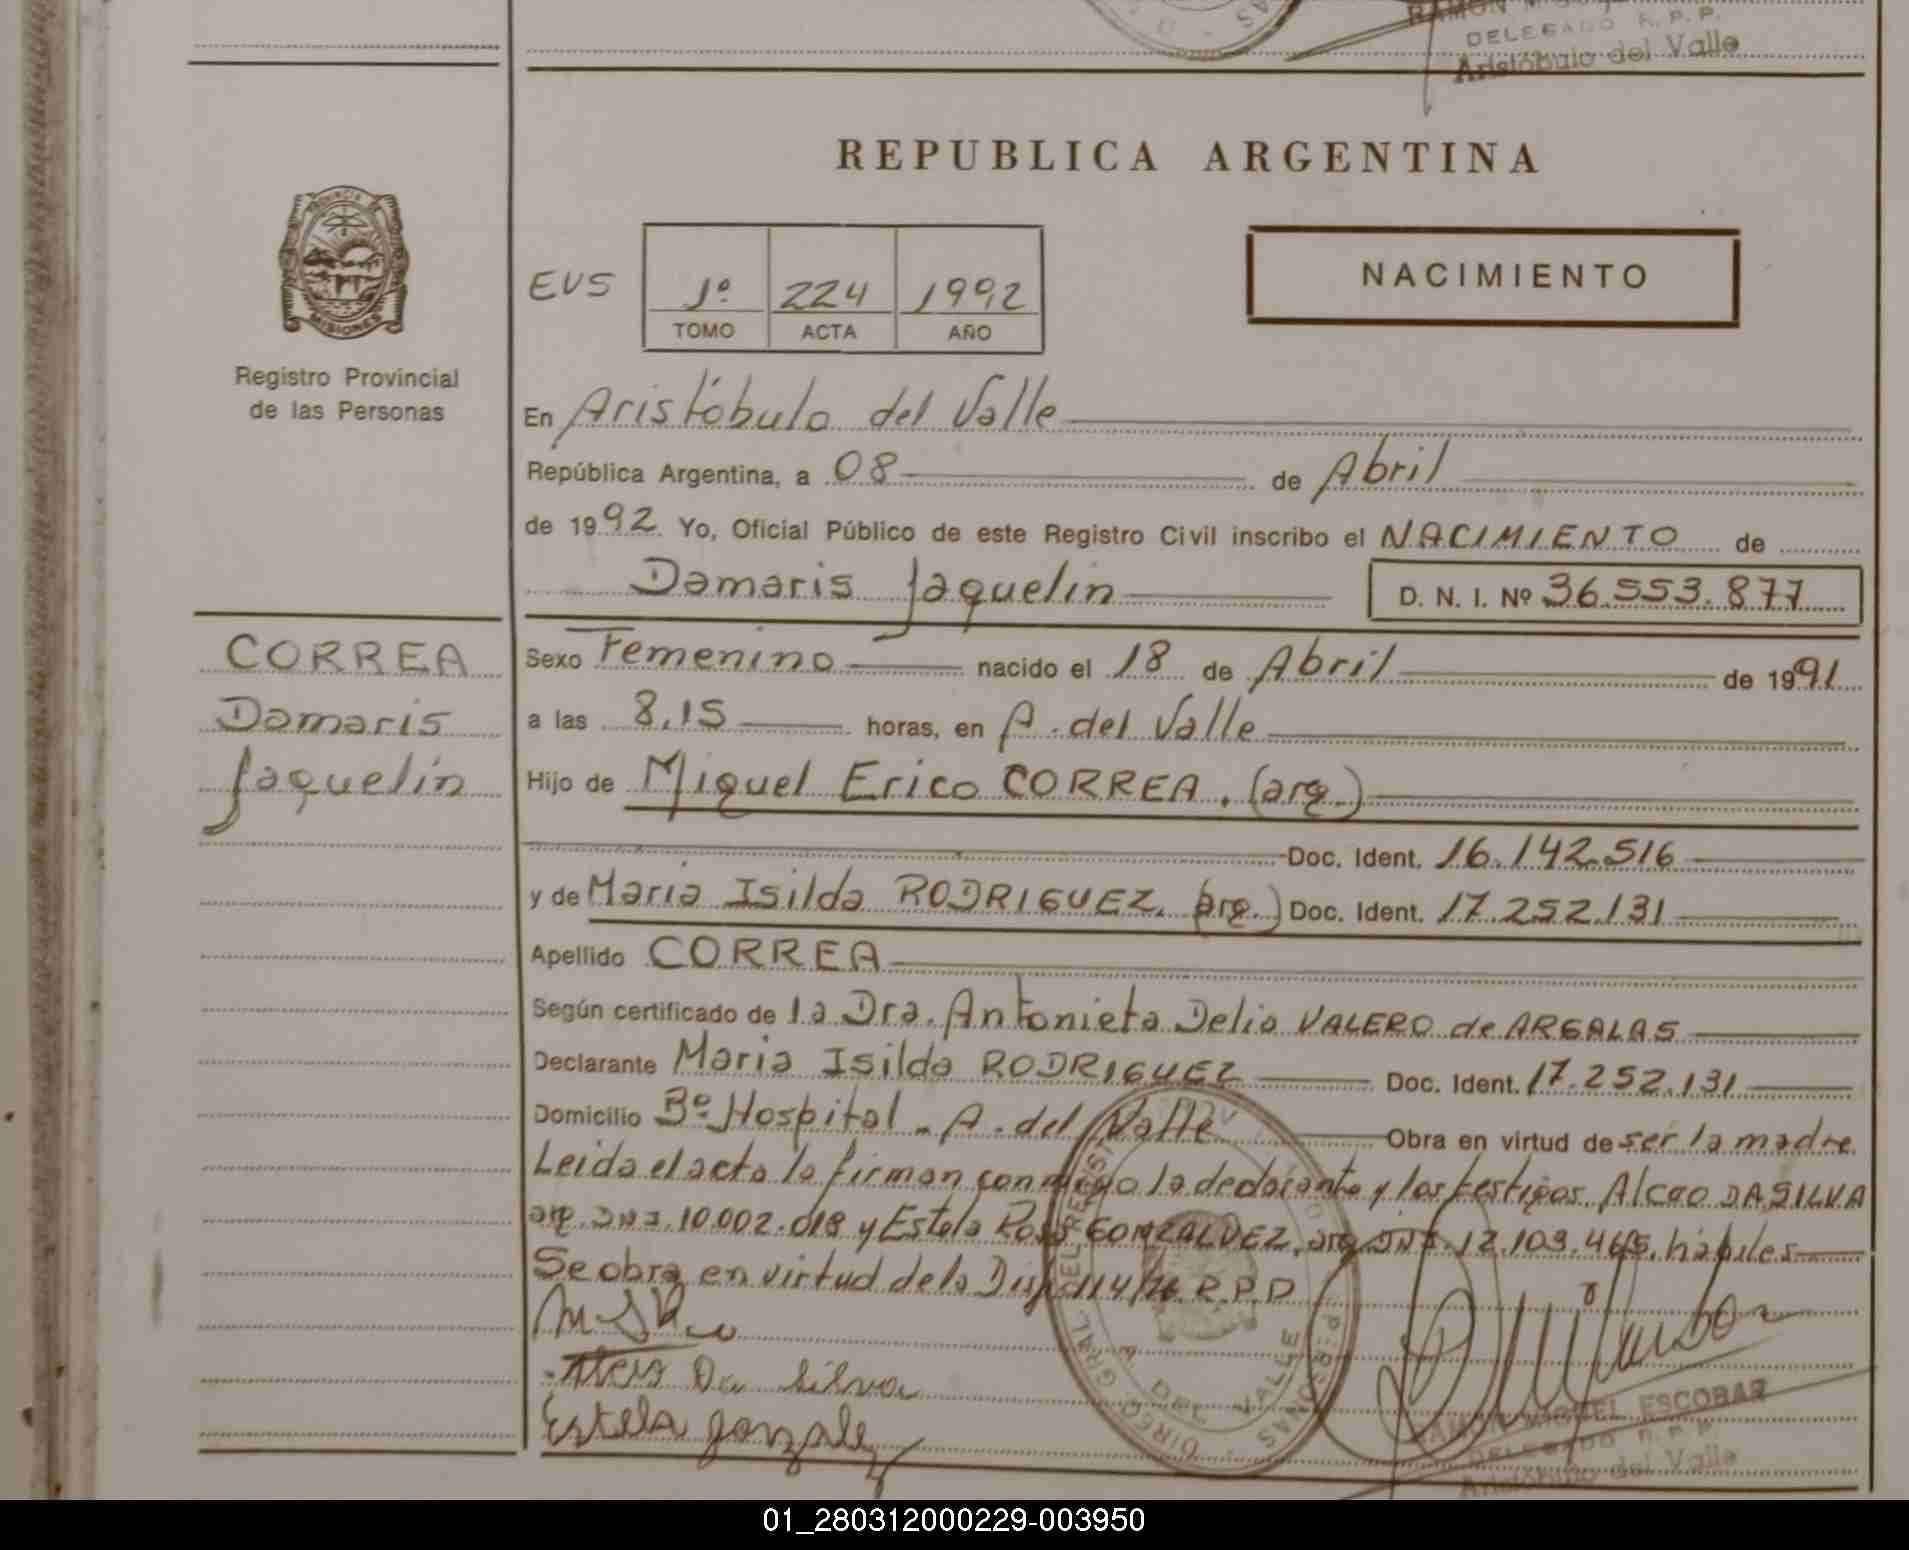 RAMON
DELEGADO R.P.P.
Aristóbulo del Valle
REPUBLICA ARGENTINA
PROVINCIA DE
MISIONES
Registro Provincial
de las Personas
EVS
1º 224 1992
TOMO ACTA AÑO
NACIMIENTO
En Aristóbulo del Valle
República Argentina, a 08 de Abril
de 1992 Yo, Oficial Público de este Registro Civil inscribo el NACIMIENTO de
Damaris Jaquelin
D. N. I. Nº 36.553.877
CORREA
Damaris
Jaquelin
Sexo Femenino nacido el 18 de Abril de 1991
a las 8,15 horas, en A. del Valle
Hijo de Miguel Erico CORREA. (arg.)
Doc. Ident. 16.142.516
y de Maria Isilda RODRIGUEZ. (arg.) Doc. Ident. 17.252.131
Apellido CORREA
Según certificado de la Dra. Antonieta Delia VALERO de ARGALAS
Declarante Maria Isilda RODRIGUEZ Doc. Ident. 17.252.131
Domicilio Bº Hospital - A. del Valle Obra en virtud de ser la madre
Leida el acta la firman conmigo la declarante y los testigos Alcao DA SILVA
arg. DNI. 10.002.018 y Estela Rosa GONZALVEZ, arg. DNI. 12.103.465. hábiles
Se obra en virtud de la Disp. 114/76 R.P.D
Da Silva
Estela Gonzalez
DIREC. GRAL. DEL REGISTRO
PERSONAS
DEL VALLE
RAMON MIGUEL ESCOBAR
DELEGADO R.P.P.
Aristóbulo del Valle
01_280312000229-003950